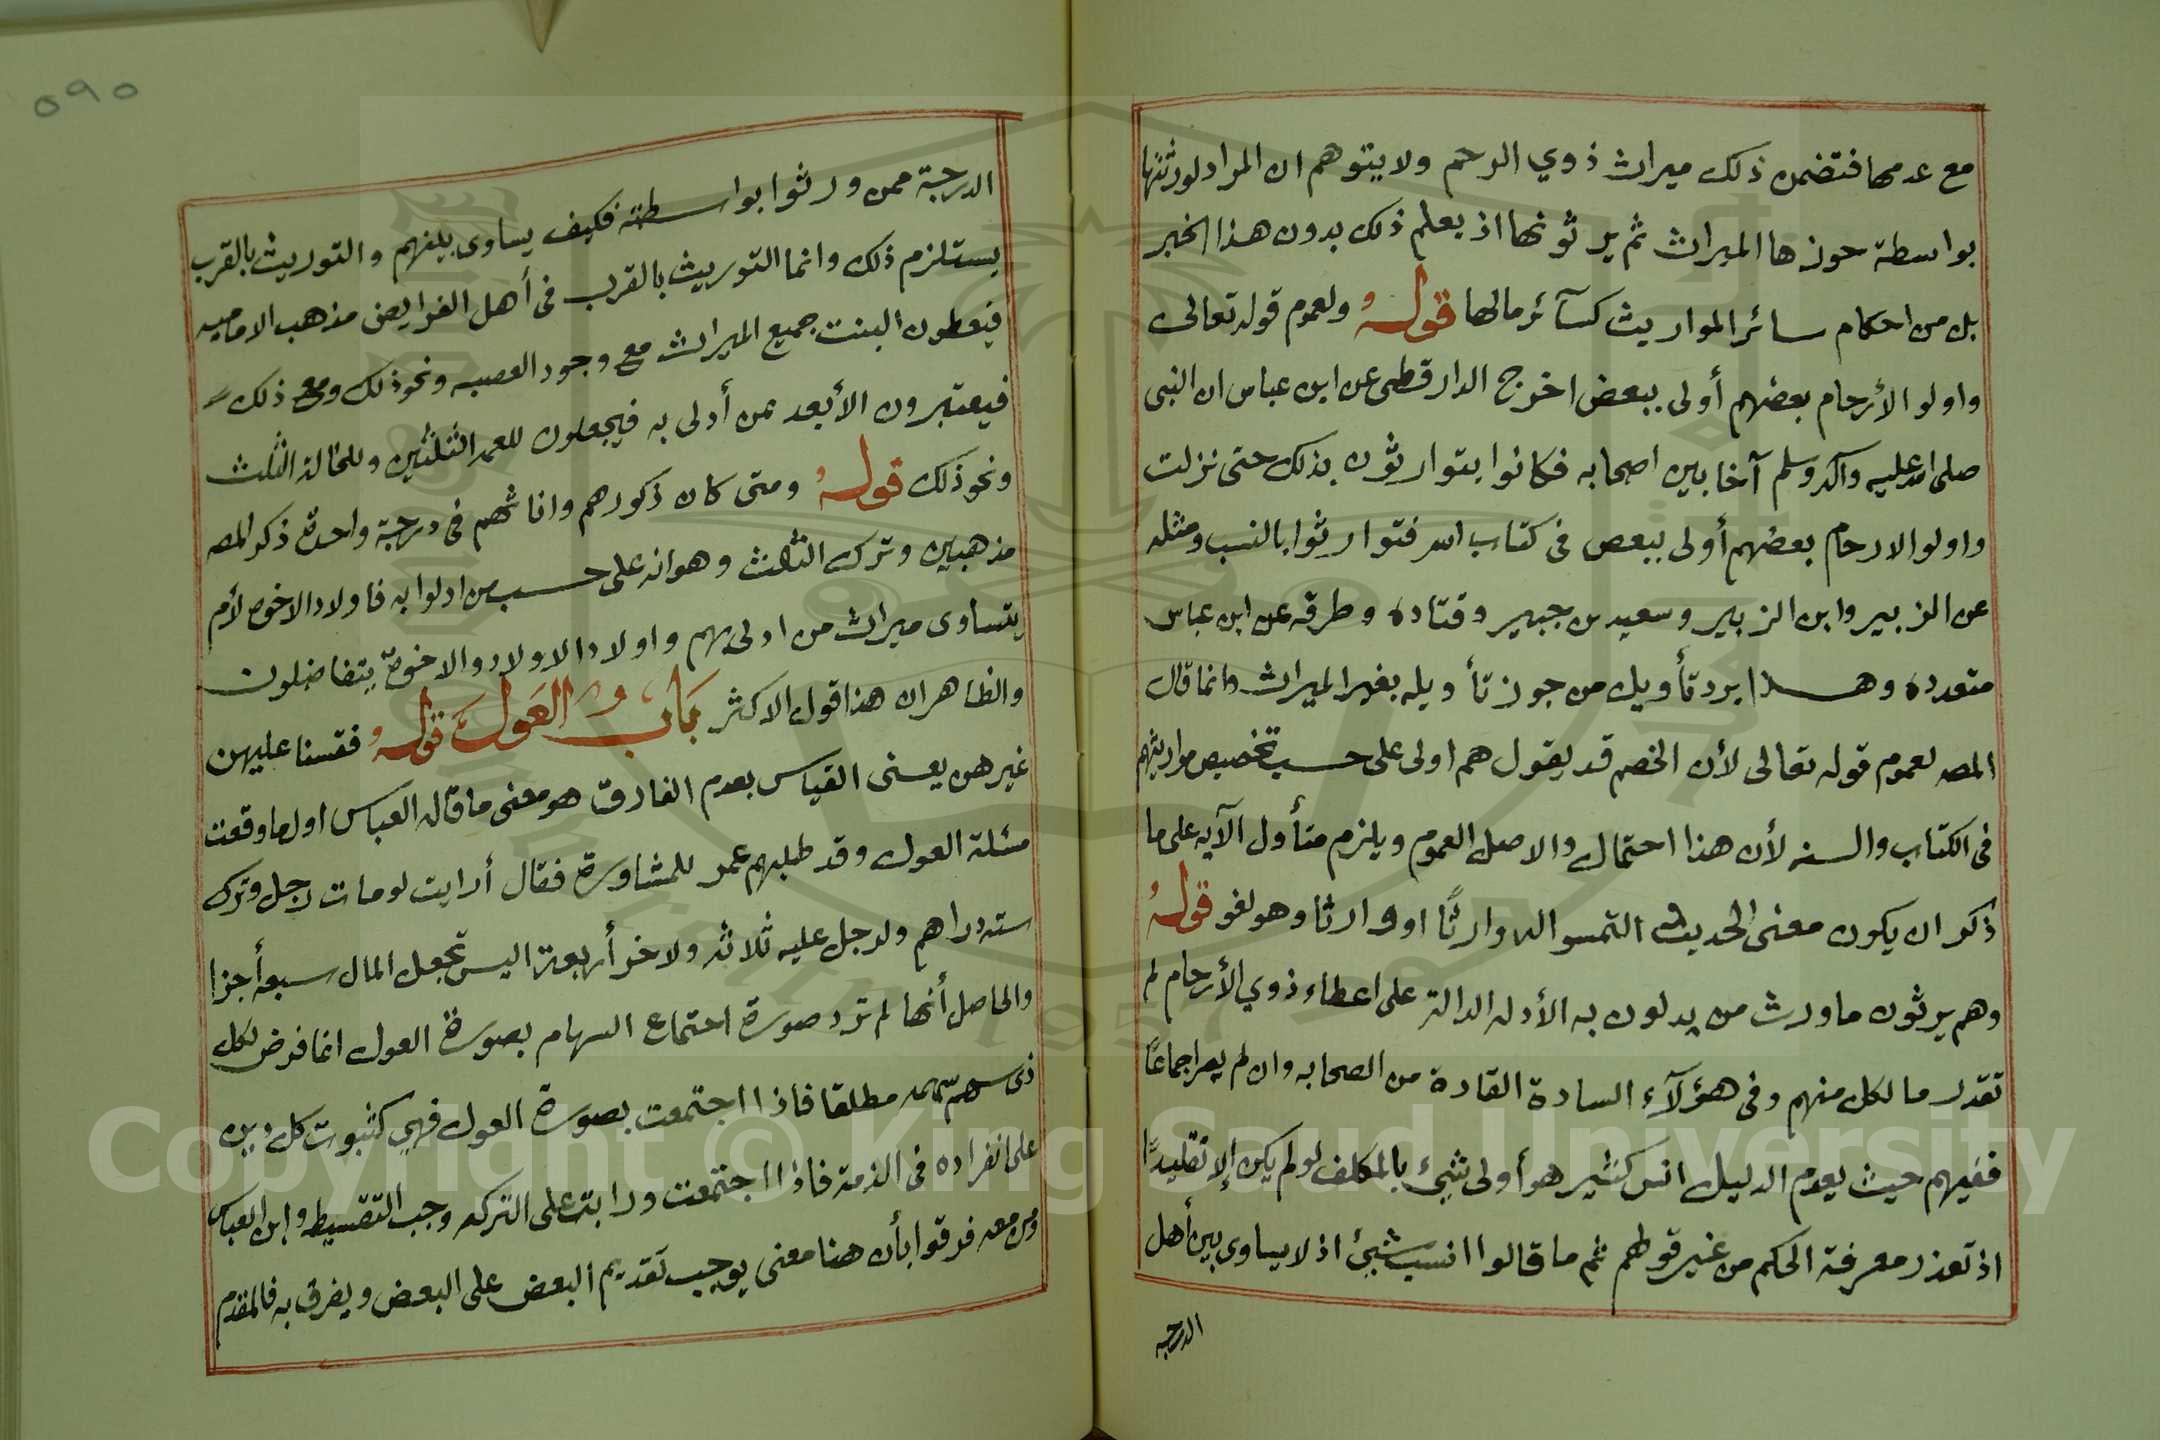 مع عدمها فتضمن ذلك ميراث ذوي الرحم ولا يتوهم ان المراد لورثتها
بواسطة حوزها الميراث ثم يرثونها اذ يعلم ذلك بدون هذا الخبر
بل من احكام سائر المواريث كسآئر مالها قوله ولعموم قوله تعالى
واولو الأرحام بعضهم أولى ببعض اخرج الدارقطى عن ابن عباس ان النبى
صلى الله عليه وآله وسلم آخا بين اصحابه فكانوا يتوارثون بذلك حتى نزلت
واولوا الارحام بعضهم أولى ببعض فى كتاب الله فتوارثوا بالنسب ومثله
عن الزبير وابن الزبير وسعيد بن جبير وقتاده وطرقه عن ابن عباس
متعدده وهذا يرد تأويل من جوز تأويله بغير الميراث وانما قال
المصه لعموم قوله تعالى لأن الخصم قد يقول هم اولى على حسب تخصيص مواريثهم
فى الكتاب والسنه لأن هذا احتمال والاصل العموم ويلزم متأول الآيه على ما
ذكر ان يكون معنى الحديث التمسوا له وارثًا او وارثا وهو لغو قوله
وهم يرثون ما ورث من يدلون به الأدله الدالة على اعطاء ذوي الأرحام لم
تقدر ما لكل منهم وفى هؤلآء السادة القادة من الصحابه وان لم يصر اجماعًا
ففيهم حيث يعدم الدليل انس كثير هو أولى شيئ بالمكلف لو لم يكن إلا تقليدًا
اذ تعذر معرفة الحكم من غير قولهم ثم ما قالوا انسب شيئ اذ لا يساوى بين أهل
الدرجه
٥٩٥
الدرجة ممن ورثوا بواسطته فكيف يساوى بينهم والتوريث بالقرب
يستلزم ذلك وانما التوريث بالقرب فى أهل الفرايض مذهب الاماميه
فيعطون البنت جميع الميراث مع وجود العصبه ونحو ذلك ومع ذلك
فيعتبرون الأبعد بمن أدلى به فيجعلون للعمه الثلثين وللخالة الثلث
ونحو ذلك قوله ومتى كان ذكورهم واناثهم فى درجة واحدة ذكر المصه
مذهبين وترك الثالث وهو انه على حسب من ادلوا به فاولاد الاخوه لأم
يتساوى ميراث من ادلى بهم واولاد الاولاد والاخوة يتفاضلون
والظاهر ان هذا قول الاكثر باب العول قوله فقسنا عليهن
غيرهن يعنى القياس بعدم الفارق هو معنى ما قاله العباس اول ما وقعت
مسئلة العول وقد طلبهم عمر للمشاورة فقال أرايت لو مات رجل وترك
سته دراهم ولرجل عليه ثلاثه ولاخر أربعة اليس تجعل المال سبعه أجزا
والحاصل أنها لم ترد صورة اجتماع السهام بصورة العول انما فرض لكل
ذى سهم سهمه مطلقا فاذا اجتمعت بصورة العول فهي كثبوت كل دين
على انفراده فى الذمة فاذا اجتمعت ورابت على التركه وجب التقسيط وابن العباس
ومن معه فرقوا بأن هنا معنى يوجب تقديم البعض على البعض ويفرق به فالمقدم